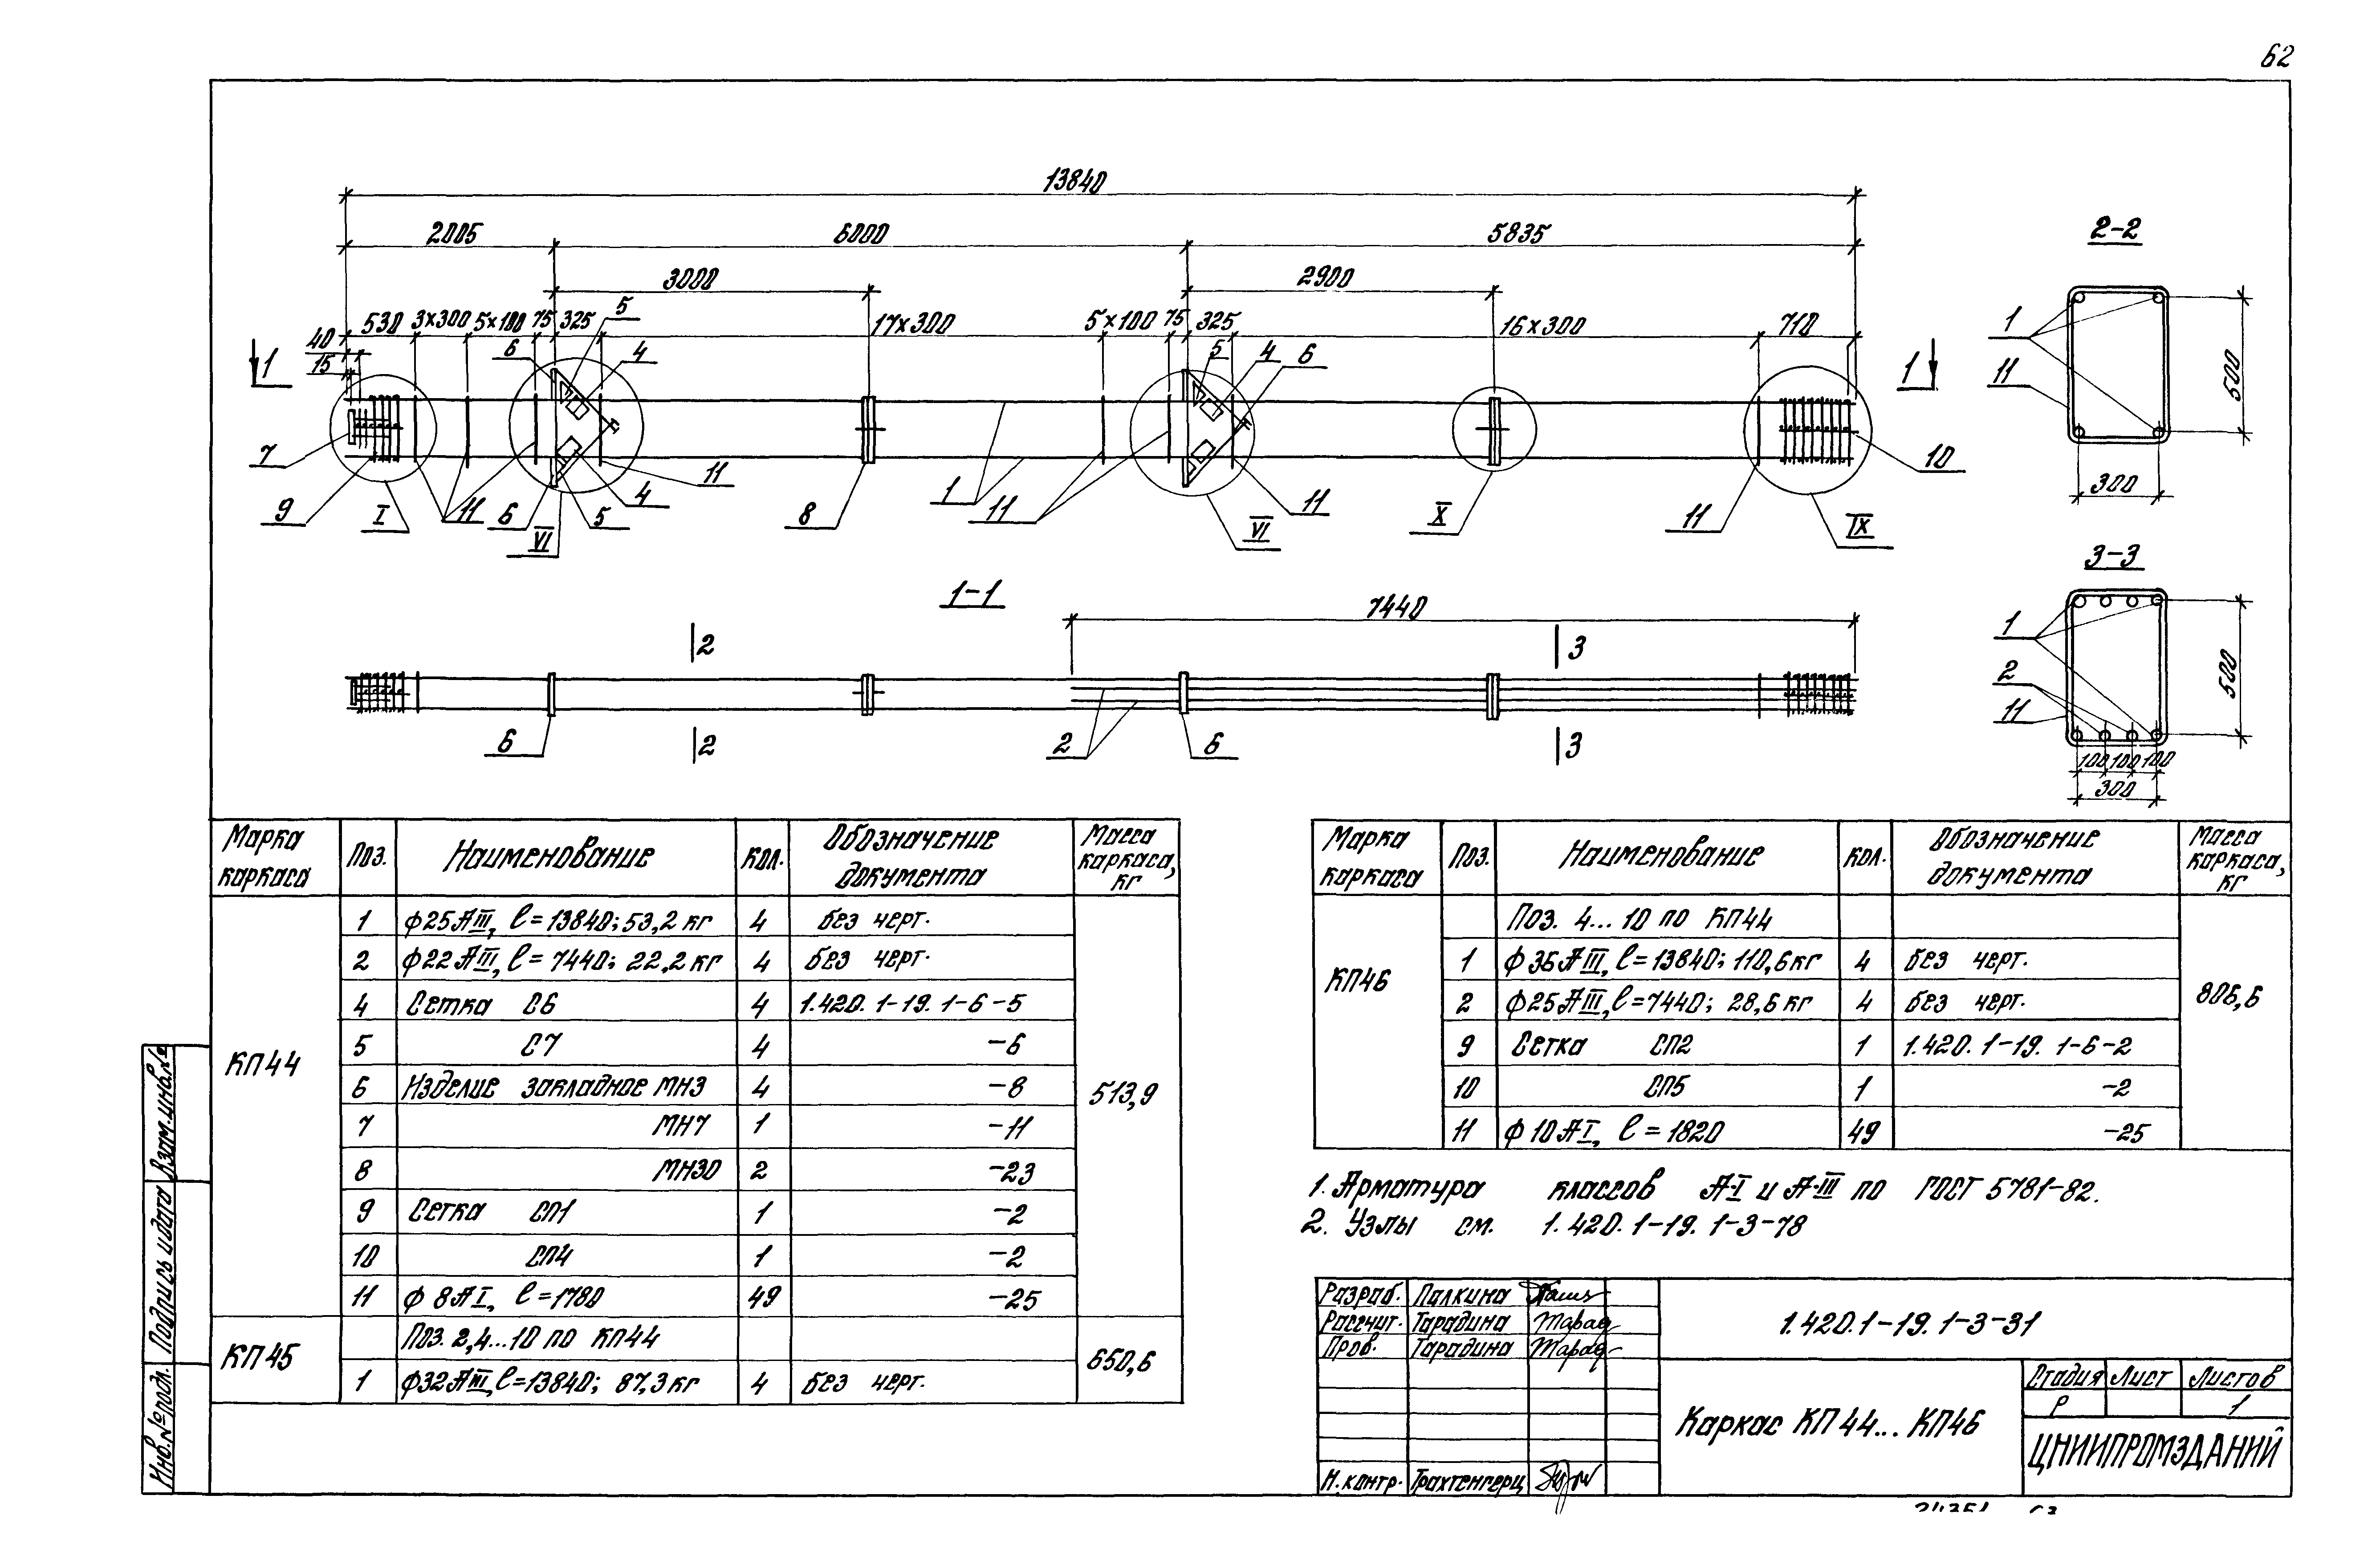 62
13840
2005 6000 5835
3000 2900
530 3×300 5×100 75 325 17×300 5×100 75 325 16×300 710
40
15
1 1
5 6 4 5 4 6
7 9 I 11 6 VI 5 4 11 8 1 11 VI 11 X 11 IX 10
2-2
1
11
500
300
1-1
7440
2 3
6 2 2 6 3
3-3
1
2
11
500
100 100 100
300
Марка каркаса Поз. Наименование Кол. Обозначение документа Масса каркаса, кг
КП44 513,9
1 ϕ25АIII, ℓ=13840; 53,2 кг 4 без черт.
2 ϕ22АIII, ℓ=7440; 22,2 кг 4 без черт.
4 Сетка С6 4 1.420.1-19.1-6-5
5 С7 4 -6
6 Изделие закладное МН3 4 -8
7 МН7 1 -11
8 МН30 2 -23
9 Сетка СП1 1 -2
10 СП4 1 -2
11 ϕ 8АI, ℓ=1780 49 -25
КП45 650,6
Поз. 2,4...10 по КП44
1 ϕ32АIII, ℓ=13840; 87,3 кг 4 без черт.
Марка каркаса Поз. Наименование Кол. Обозначение документа Масса каркаса, кг
КП46 806,6
Поз. 4...10 по КП44
1 ϕ36АIII, ℓ=13840; 110,6 кг 4 без черт.
2 ϕ25АIII, ℓ=7440; 28,6 кг 4 без черт.
9 Сетка СП2 1 1.420.1-19.1-6-2
10 СП5 1 -2
11 ϕ10АI, ℓ=1820 49 -25
1. Арматура классов А-I и А-III по ГОСТ 5781-82.
2. Узлы см. 1.420.1-19.1-3-78
Разраб. Палкина
Рассчит. Тарадина
Пров. Тарадина
Н.контр. Трахтенгерц
1.420.1-19.1-3-31
Каркас КП44...КП46
Стадия Лист Листов
Р 1
ЦНИИПРОМЗДАНИЙ
Взам.инв.№
Подпись и дата
Инв.№ подл.